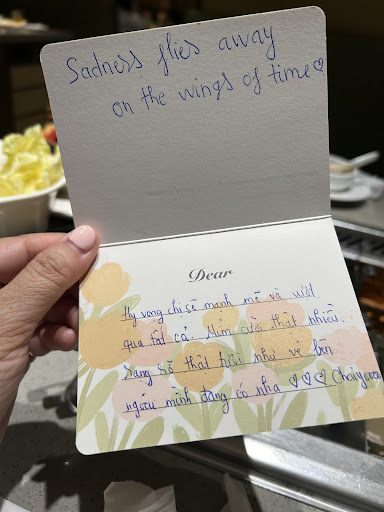 Sadness flies away
on the wings of time
Dear
Hy vọng chị sẽ mạnh mẽ và vượt
qua tất cả. Mỉm cười thật nhiều.
rạng rỡ thật như vẻ bên
ngoài mình đang có nha